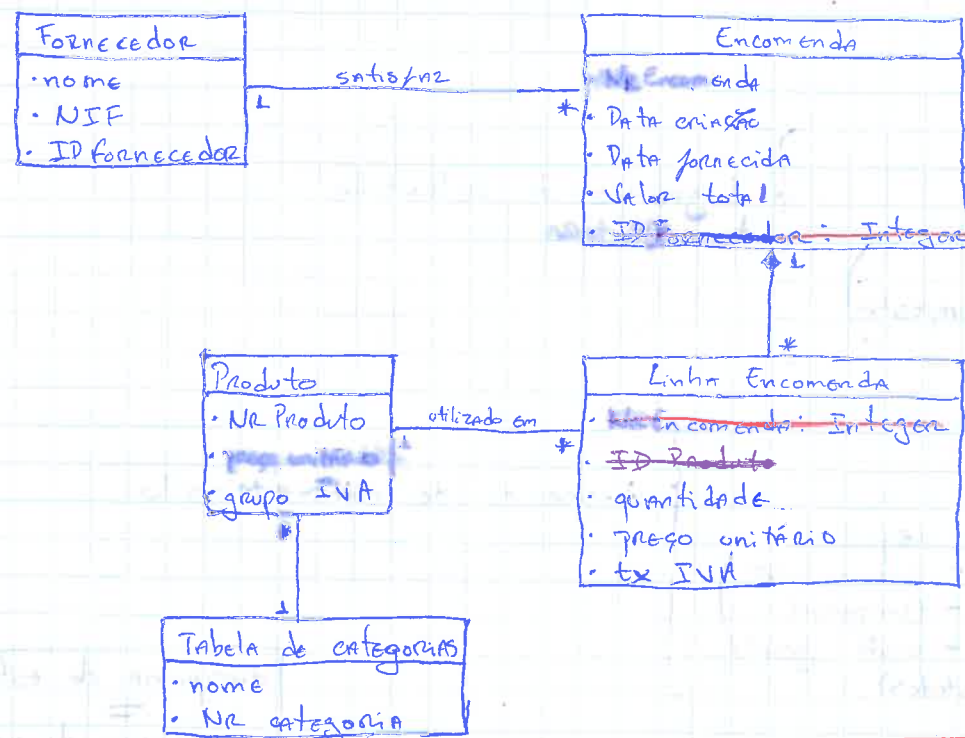 Fornecedor
• nome
• NIF
• ID fornecedor
satisfaz
1
*
Encomenda
Encomenda
• Data criação
• Data fornecida
• Valor total
• ID Fornecedor: Integer
1
*
Produto
• NR Produto
• grupo IVA
utilizado em
1
*
Linha Encomenda
Encomenda: Integer
• ID Produto
• quantidade
• preço unitário
• tx IVA
*
1
Tabela de categorias
• nome
• NR categoria